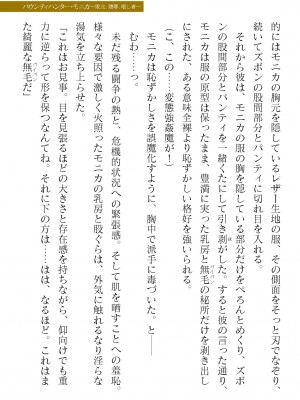 バウンティハンター・モニカ〜敗北、陵辱、晒し者〜
的にはモニカの胸元を隠しているレザー生地の服、その側面をそっと刃でなぞり、
続いてズボンの股間部分とパンティに切れ目を入れる。
それから彼は、モニカの服の胸を隠している部分だけをぺろんとめくり、ズボ
ンの股間部分とパンティを一緒くたにして引き剥がした。すると彼の言った通り、
モニカは服の原型は保ったまま、豊満に実った乳房と無毛の秘所だけを剥き出し
にされた、ある意味全裸より恥ずかしい格好を強いられる。
(こ、この……変態強姦魔が!)
モニカは恥ずかしさを誤魔化すように、胸中で派手に毒づいた。と――
むわ……っ。
未だ残る闘争の熱と、危機的状況への緊張感。そして肌を晒すことへの羞恥。
様々な要因で激しく火照ったモニカの乳房と股ぐらは、外気に触れるなり淫らな
湯気を立ち上らせた。
「これはお見事。目を見張るほどの大きさと存在感を持ちながら、仰向けでも重
力に逆らって形を保つなんてね。それに下の方は……はは、なるほど。これはま
た綺麗な無毛だ」